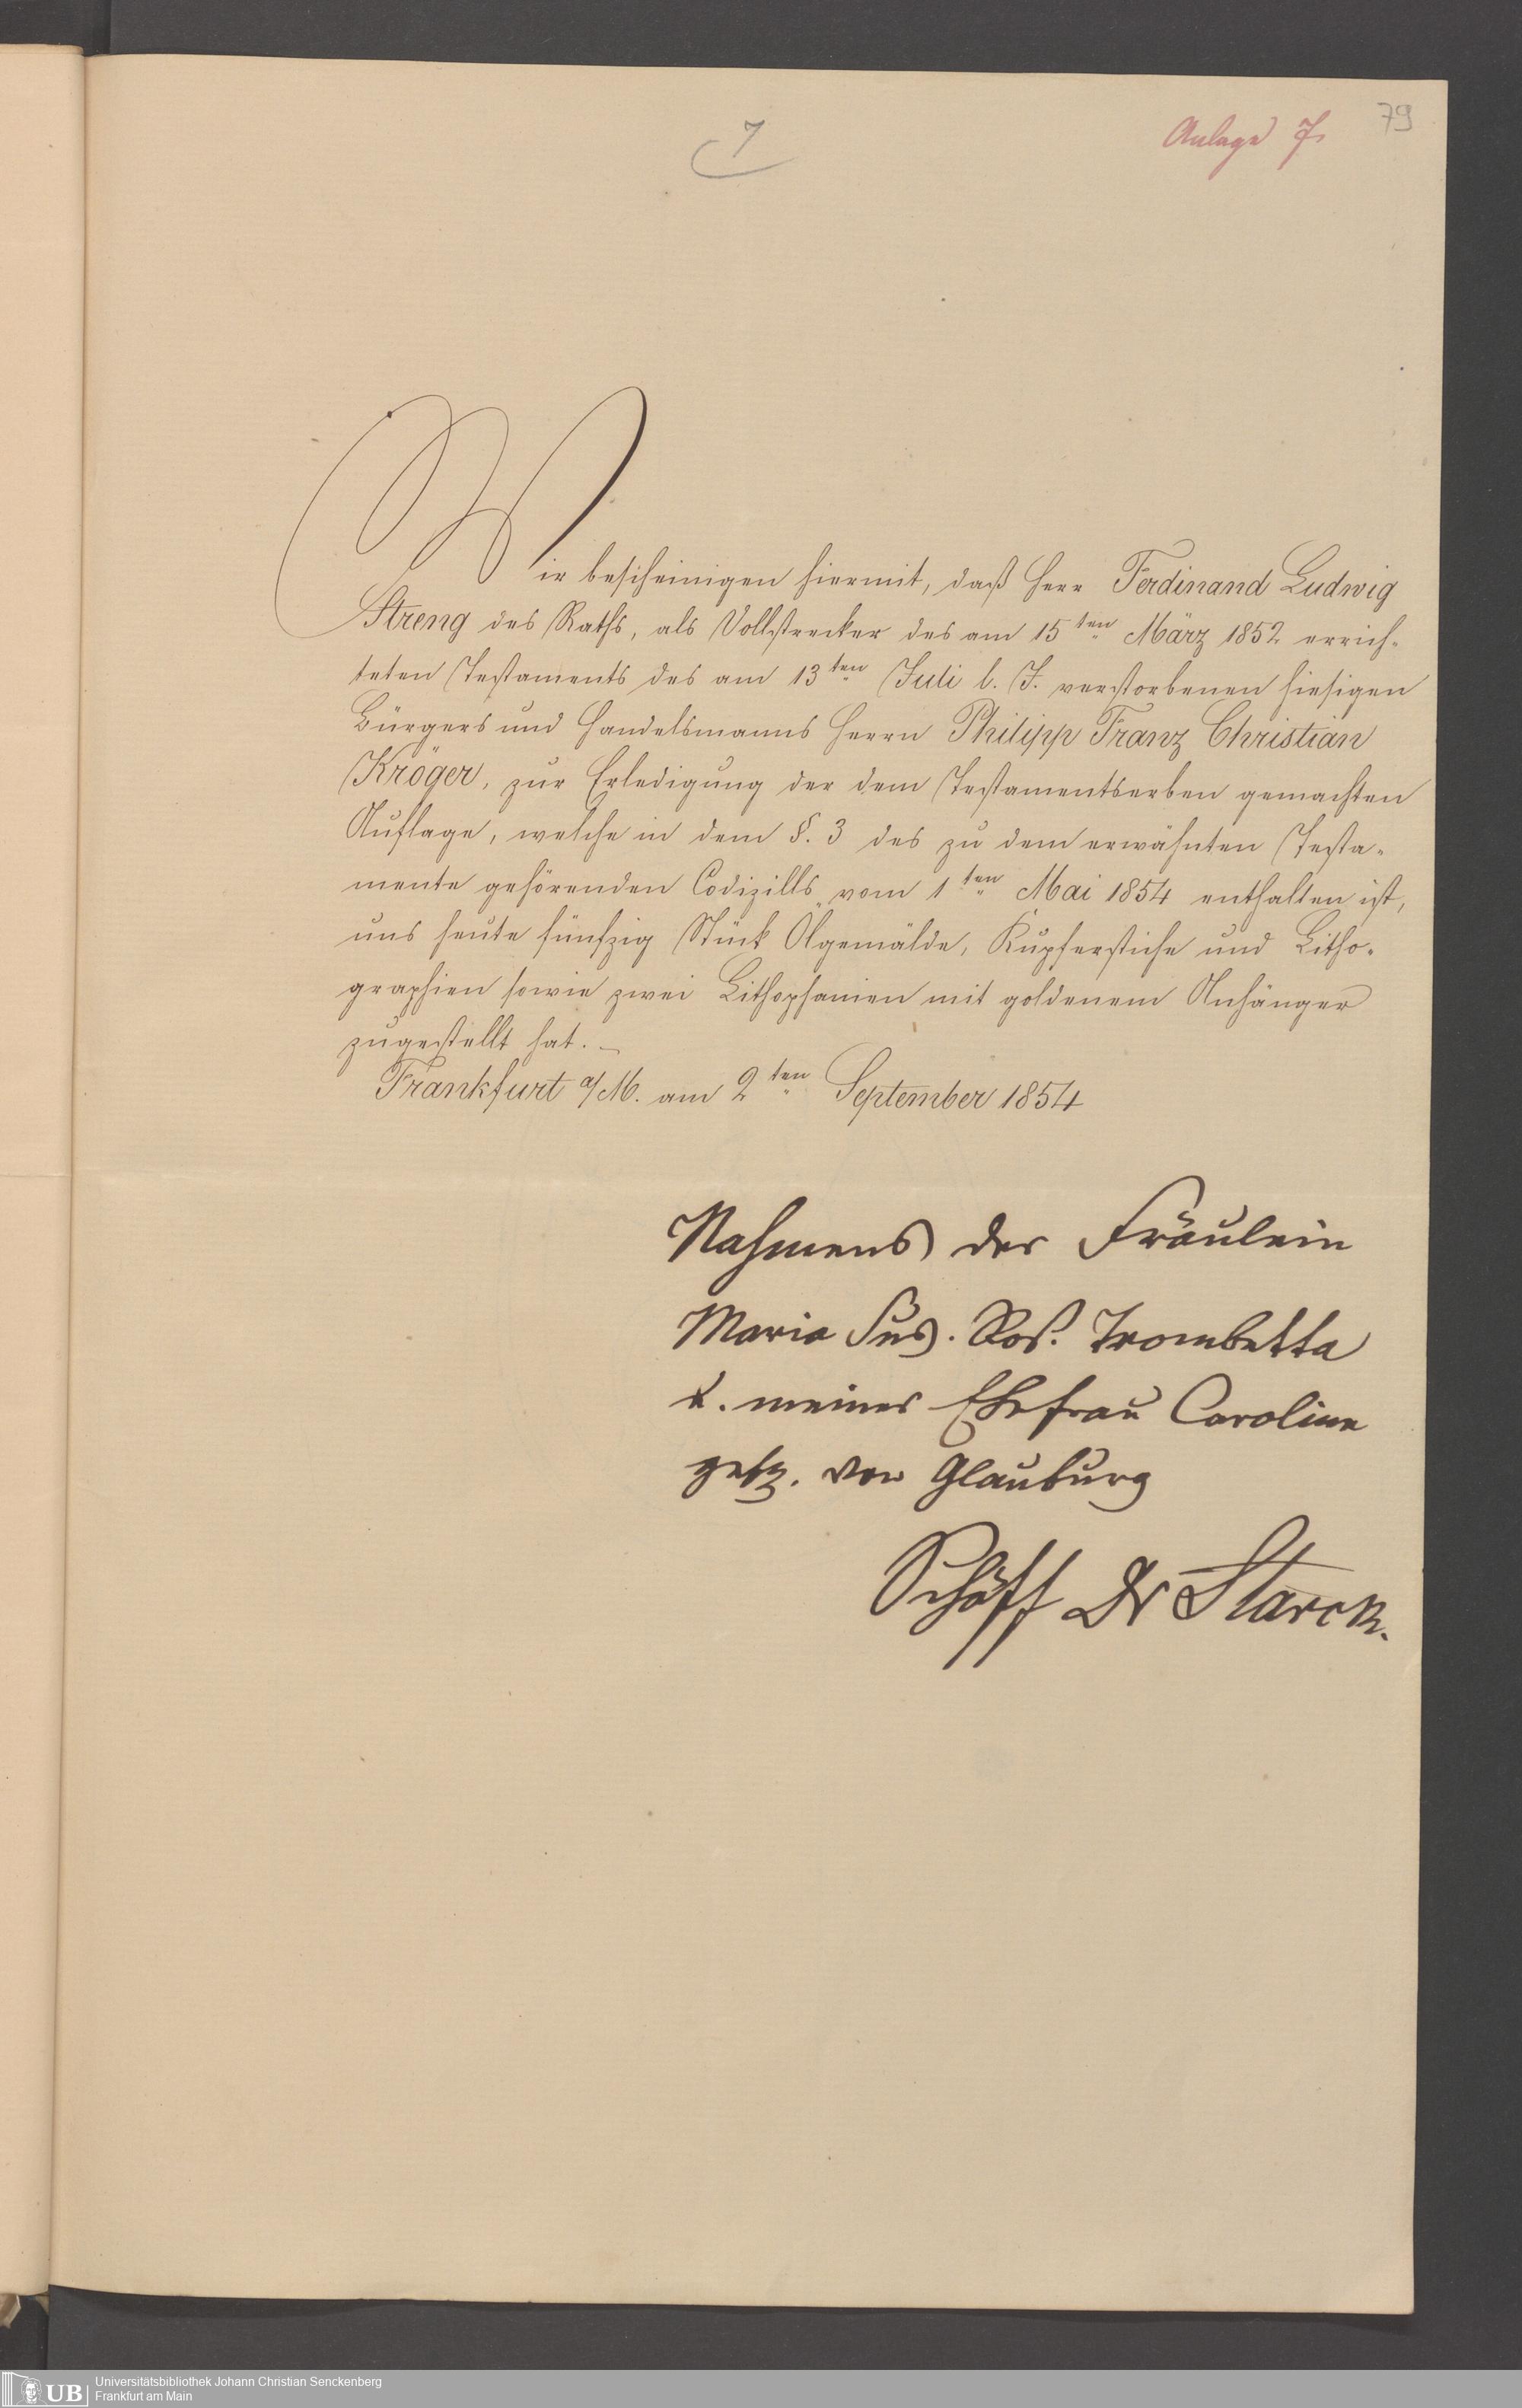 7
Anlage 7.
79
Wir bescheinigen hiermit, daß Herr Ferdinand Ludwig
Streng des Raths, als Vollstrecker des am 15ten März 1852 errich-
teten Testaments des am 13ten Juli l. J. verstorbenen hiesigen
Bürgers und Handelsmanns Herrn Philipp Franz Christian
Kröger, zur Erledigung der dem Testamentserben gemachten
Auflage, welche in dem §. 3 des zu dem erwähnten Testa-
mente gehörenden Codizills vom 1ten Mai 1854 enthalten ist,
uns heute fünfzig Stück Ölgemälde, Kupferstiche und Litho-
graphien sowie zwei Lithophanien mit goldenem Anhänger
zugestellt hat. –
Frankfurt a/M. am 2ten September 1854
Nahmens der Fräulein
Maria Sus. Ros. Trombetta
u. meiner Ehefrau Caroline
von Glauburg
Schöff Dr Starck.
UB
Universitätsbibliothek Johann Christian Senckenberg
Frankfurt am Main